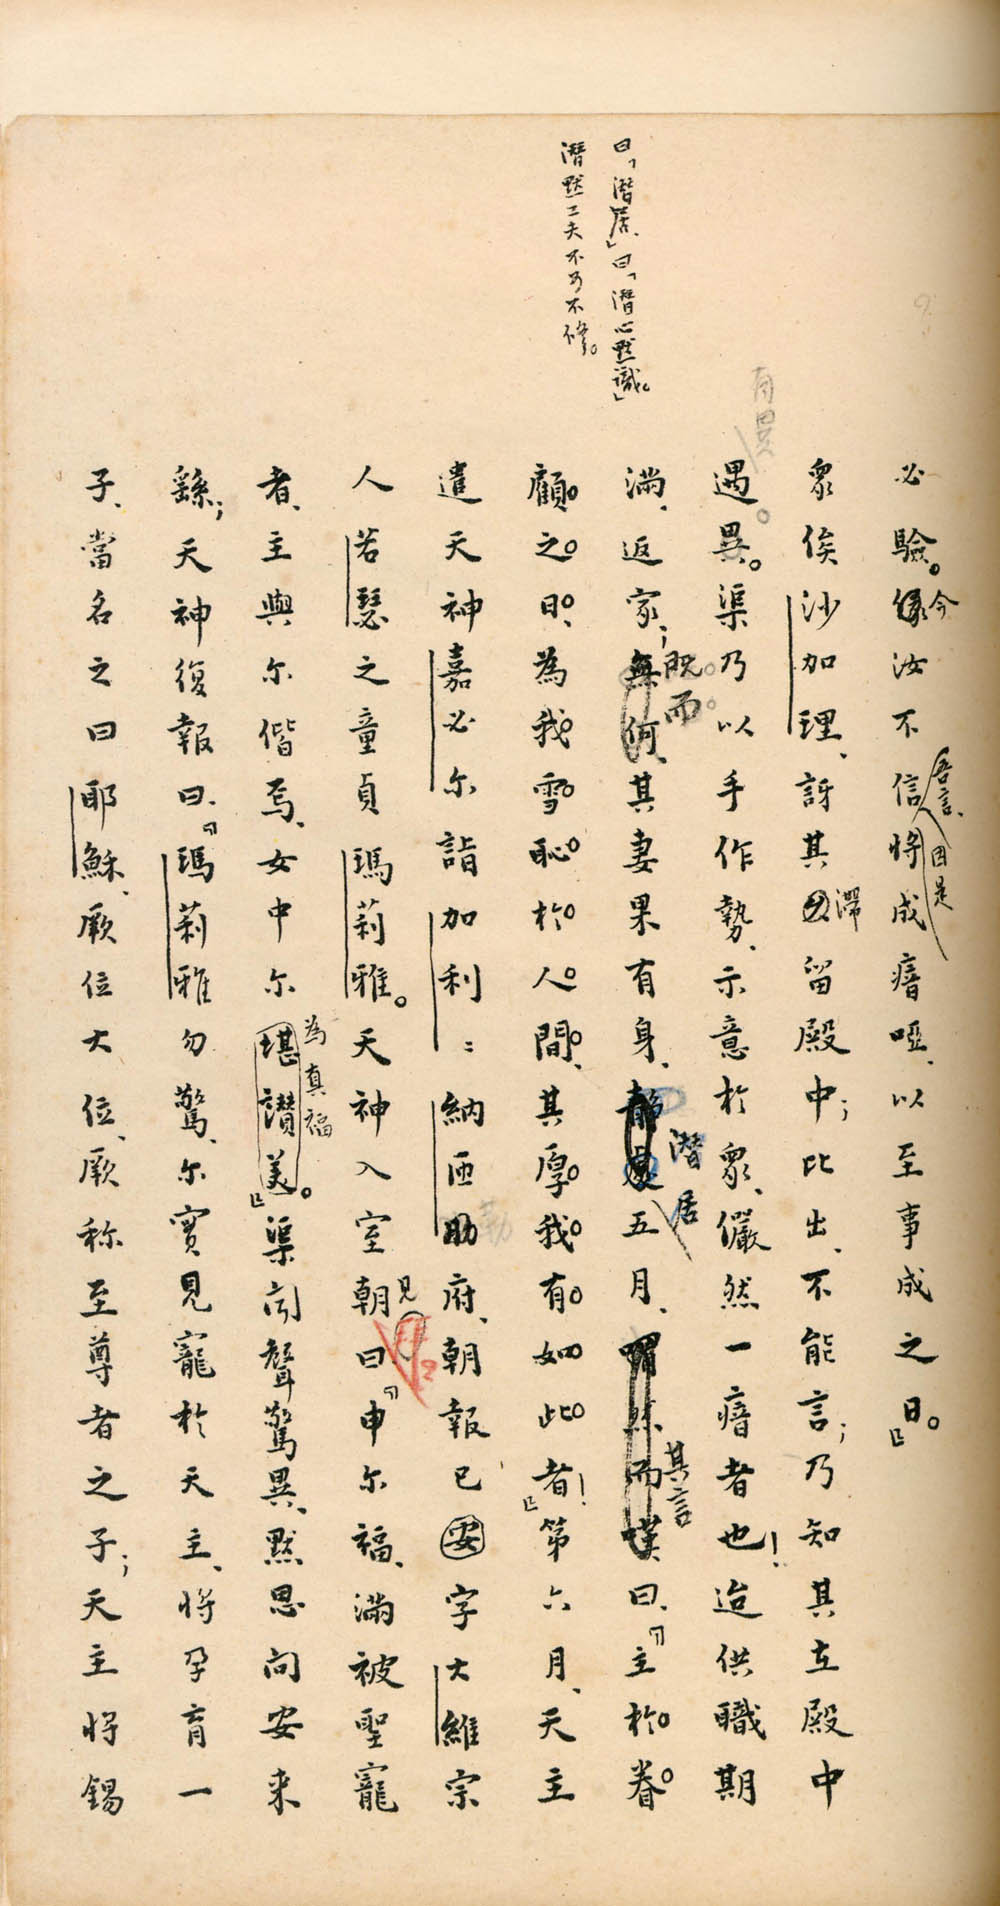 曰「潛居、」曰「潛心默識。」
潛默工夫不可不修。
有異
必驗。緣今汝不信吾言、因是將成瘖啞、以至事成之日。』
眾俟沙加理、訝其久滯留殿中；比出、不能言；乃知其在殿中
遇異。渠乃以手作勢、示意於眾、儼然一瘖者也！迨供職期
滿、返家；無何、既而其妻果有身、靜處潛居五月、喟然而嘆其言曰、『主於眷
顧之日、為我雪恥於人間、其厚我有如此者！』第六月、天主
遣天神嘉必尔詣加利：納匝肋府、朝報已安字大維宗
人若瑟之童貞瑪莉雅。天神入室朝見曰『申尔福、滿被聖寵
者、主與尔偕焉、女中尔堪讚美為真福。』渠聞聲驚異、默思問安来
繇；天神復報曰、『瑪莉雅勿驚、尔實見寵於天主、將孕育一
子、當名之曰耶穌、厥位大位、厥称至尊者之子；天主將錫